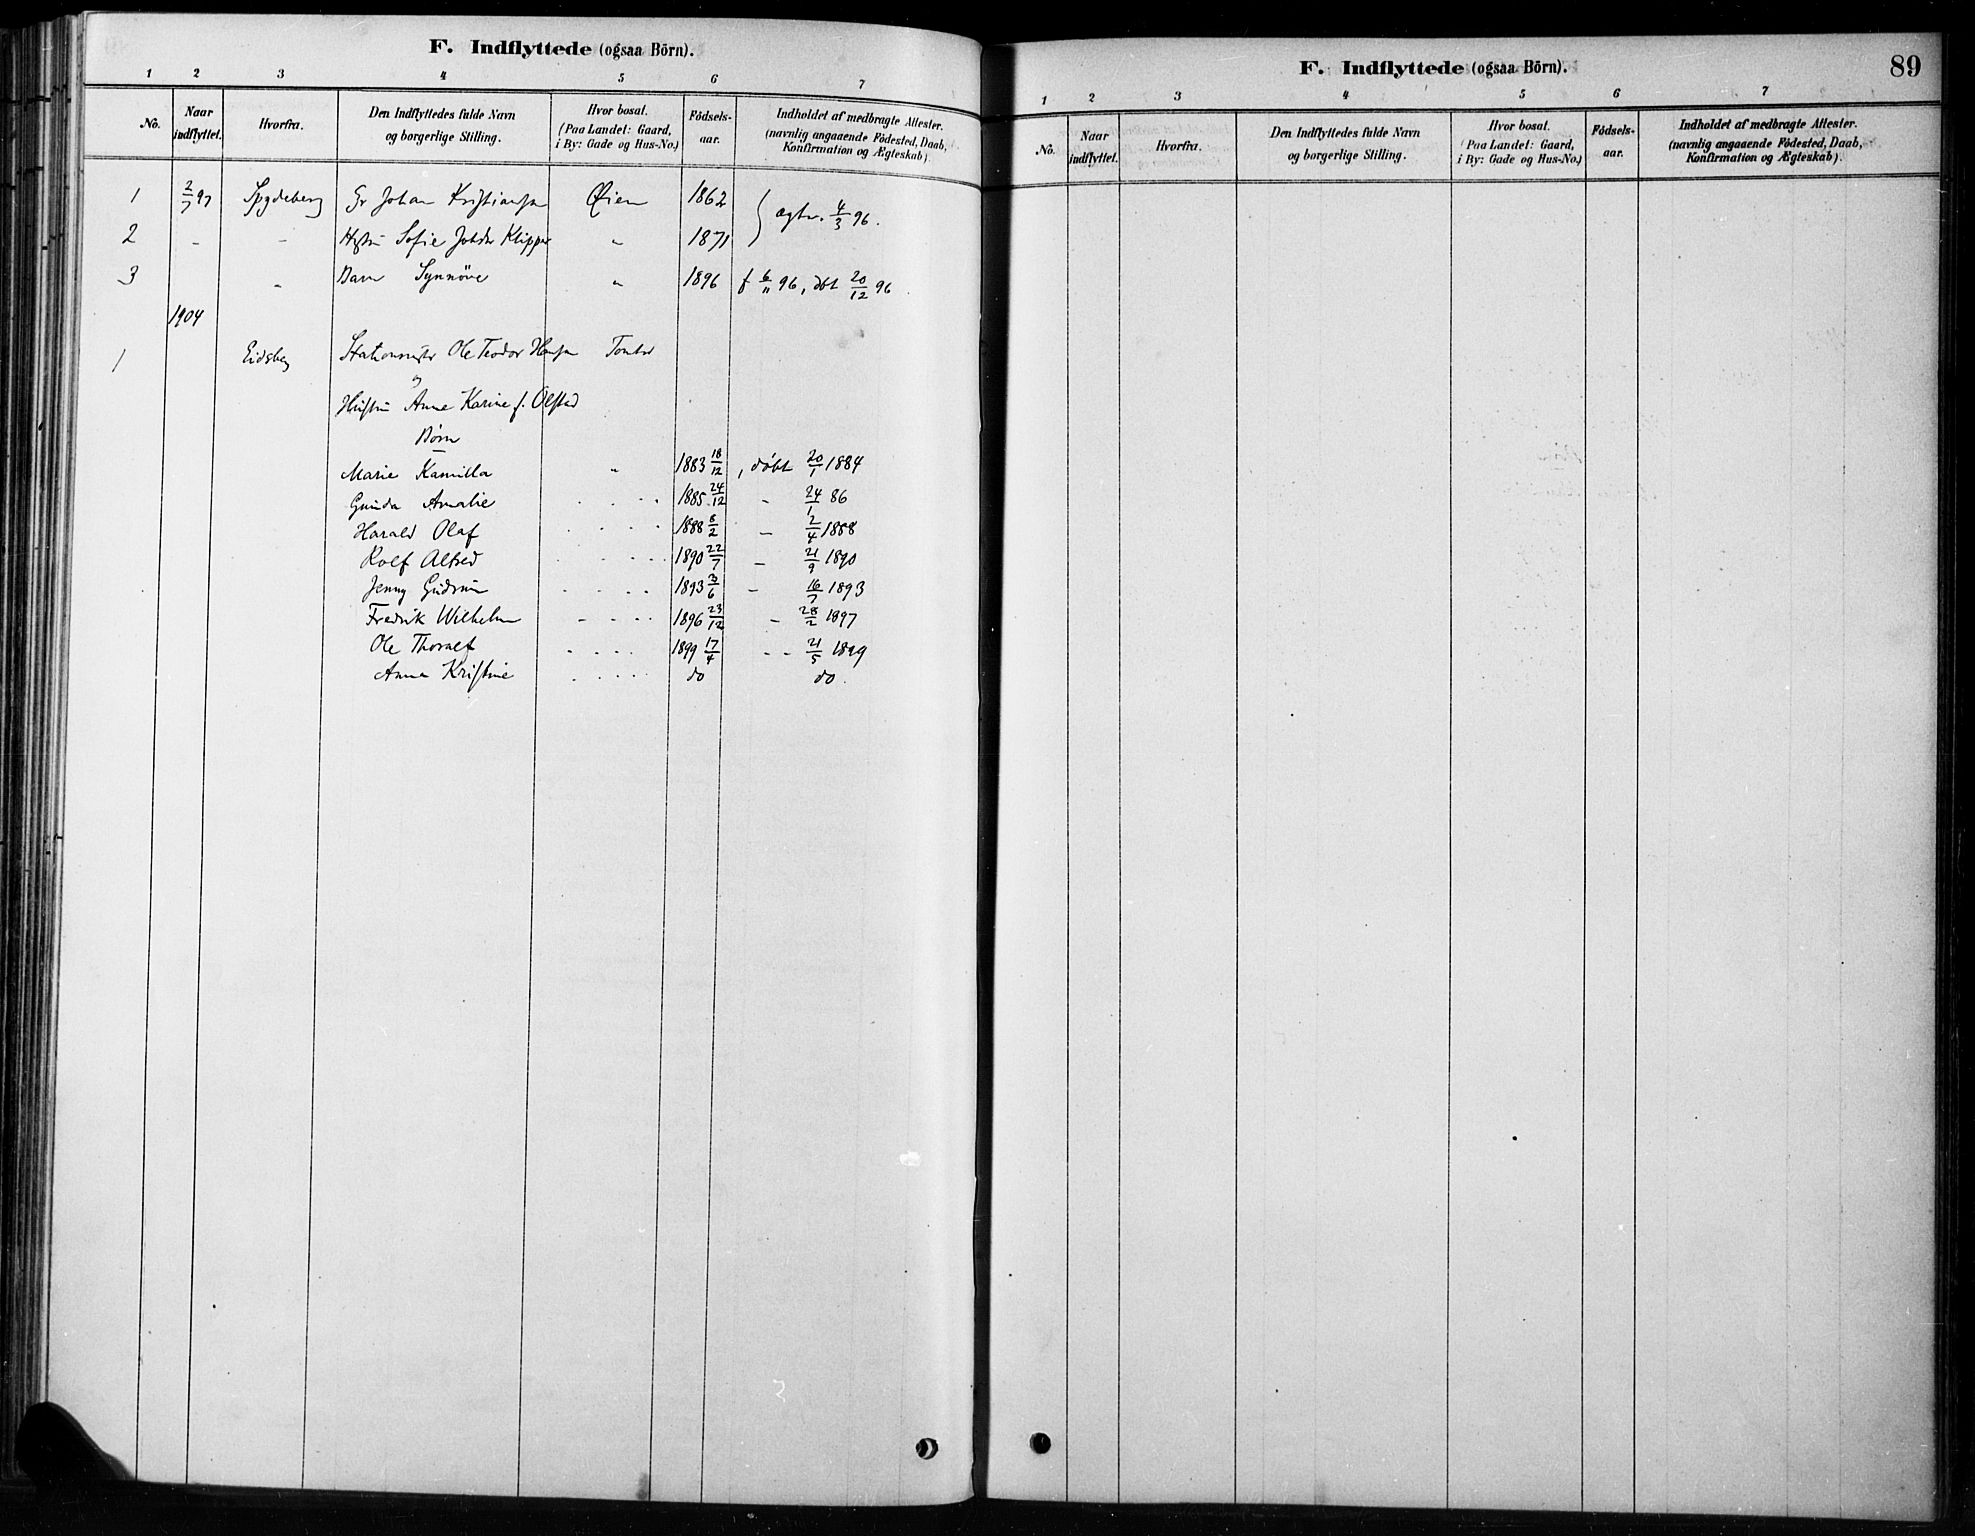 F. Indflyttede (ogsaa Börn).
1 2 3 4 5 6 7
No. Naar indflyttet. Hvorfra. Den Indflyttedes fulde Navn og borgerlige Stilling. Hvor bosat. (Paa Landet: Gaard, i By: Gade og Hus-No.) Födsels-aar. Indholdet af medbragte Attester. (navnlig angaaende Födested, Daab, Konfirmation og Ægteskab).
1 2/7 97 Spydeberg Gr Johan Kristiansen Øien 1862 } ægtv. 4/3 96.
2 - - Hustru Sofie Johsdr Klipper " 1871
3 " Barn Synnöve " 1896 f 6/11 96, döbt 20/12 96
1904
1 Eidsberg Stationsmester Ole Teodor Hansen Tomter
og
Hustru Anne Karine f. Olstad
Börn
Marie Kamilla " 1883 18/12 , döbt 20/1 1884
Gunda Amalie . . . . 1885 24/12 - 24/1 86
Harald Olaf . . . . 1888 8/2 - 2/4 1888
Rolf Alfred . . . . 1890 22/7 - 21/9 1890
Jenny Gudrun . . . . 1893 3/6 - 16/7 1893
Fredrik Wilhelm - . . . 1896 23/12 - 28/2 1897
Ole Thoralf . . . . 1899 17/4 - - 21/5 1899
Anna Kristine . . . . . do do.
F. Indflyttede (ogsaa Börn). 89
1 2 3 4 5 6 7
No. Naar indflyttet. Hvorfra. Den Indflyttedes fulde Navn og borgerlige Stilling. Hvor bosat. (Paa Landet: Gaard, i By: Gade og Hus-No.) Födsels-aar. Indholdet af medbragte Attester. (navnlig angaaende Födested, Daab, Konfirmation og Ægteskab).